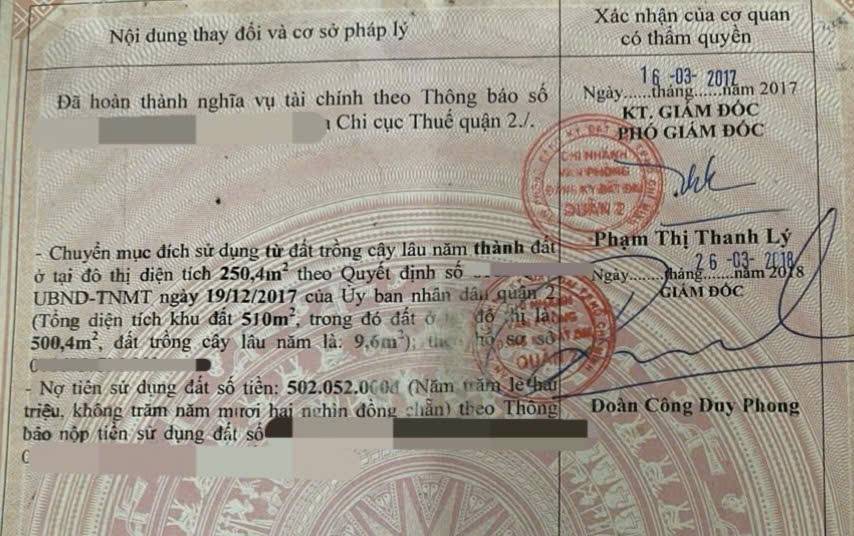 Nội dung thay đổi và cơ sở pháp lý
Xác nhận của cơ quan
có thẩm quyền
Đã hoàn thành nghĩa vụ tài chính theo Thông báo số
Chi cục Thuế quận 2./.
16 -03- 2017
Ngày......tháng......năm 2017
KT. GIÁM ĐỐC
PHÓ GIÁM ĐỐC
CHI NHÁNH
VĂN PHÒNG
ĐĂNG KÝ ĐẤT ĐAI
QUẬN 2
Phạm Thị Thanh Lý
- Chuyển mục đích sử dụng từ đất trồng cây lâu năm thành đất
ở tại đô thị diện tích 250,4m² theo Quyết định số
UBND-TNMT ngày 19/12/2017 của Ủy ban nhân dân quận 2
(Tổng diện tích khu đất 510m², trong đó đất ở đô thị là
500,4m², đất trồng cây lâu năm là: 9,6m²); hồ sơ số
26 -03- 2018
Ngày......tháng......năm 2018
GIÁM ĐỐC
Đoàn Công Duy Phong
- Nợ tiền sử dụng đất số tiền: 502.052.000đ (Năm trăm lẻ hai
triệu, không trăm năm mươi hai nghìn đồng chẵn) theo Thông
báo nộp tiền sử dụng đất số